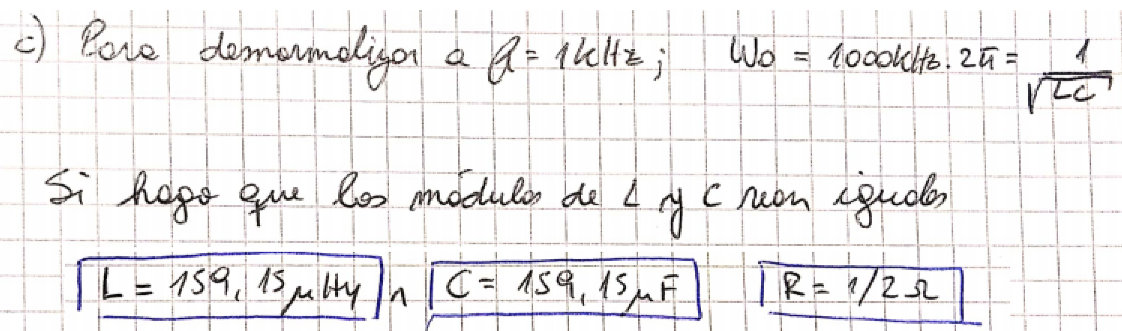 c) Para desnormalizar a f = 1kHz; W0 = 1000kHz. 2π = 1/√LC
Si hago que los módulos de L y C sean iguales
L = 159,15 μHy ∧ C = 159,15 μF R = 1/2 Ω